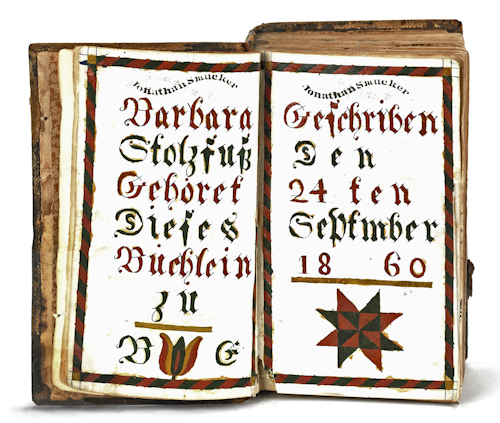 Jonathan Smucker
Barbara
Stolzfuß
Gehöret
Dieſes
Büchlein
zu
B E
Jonathan Smucker
Geſchriben
Den
24 ten
Septmber
18 60